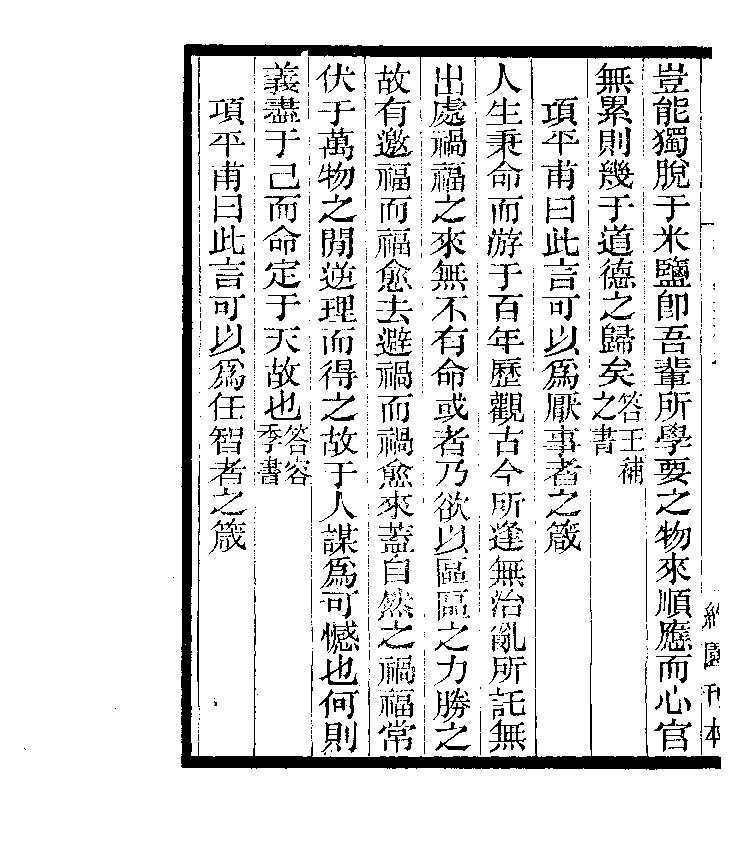 約園刊本
豈能獨脫于米鹽卽吾輩所學要之物來順應而心官
無累則幾于道德之歸矣答王補之書
項平甫曰此言可以爲厭事者之箴
人生秉命而游于百年歷觀古今所逢無治亂所託無
出處禍福之來無不有命或者乃欲以區區之力勝之
故有邀福而福愈去避禍而禍愈來蓋自然之禍福常
伏于萬物之閒逆理而得之故于人謀爲可憾也何則
義盡于己而命定于天故也答容季書
項平甫曰此言可以爲任智者之箴